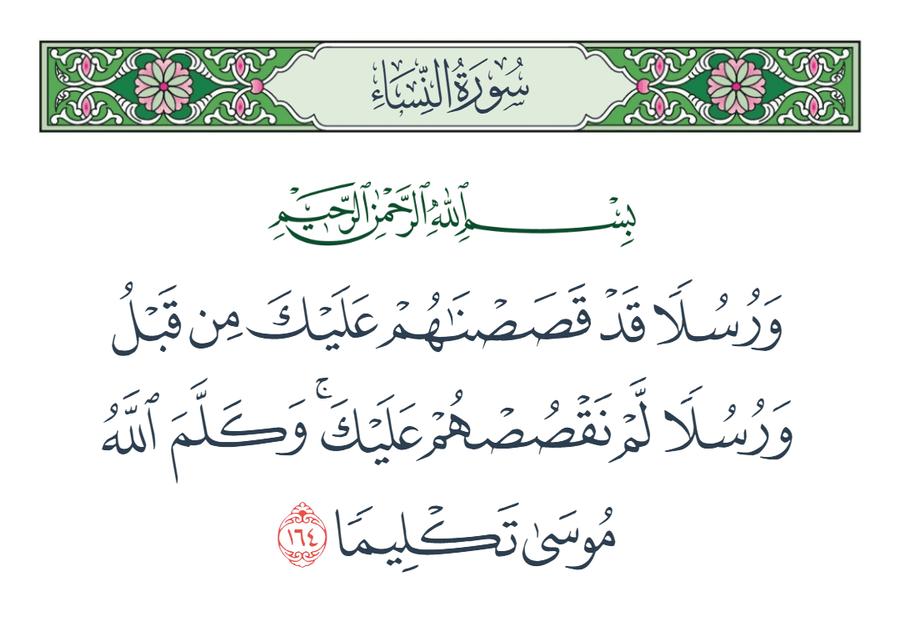 سُورَةُ النِّسَاءِ
بِسْمِ ٱللَّهِ ٱلرَّحْمَٰنِ ٱلرَّحِيمِ
وَرُسُلًا قَدْ قَصَصْنَٰهُمْ عَلَيْكَ مِن قَبْلُ
وَرُسُلًا لَّمْ نَقْصُصْهُمْ عَلَيْكَ ۚ وَكَلَّمَ ٱللَّهُ
مُوسَىٰ تَكْلِيمًا ١٦٤